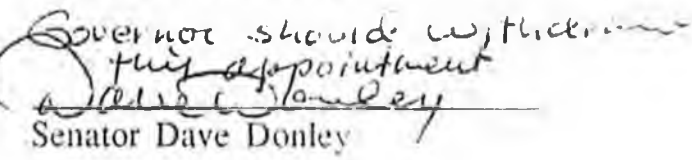 Governor should withdraw
this appointment
Dave Donley
Senator Dave Donley